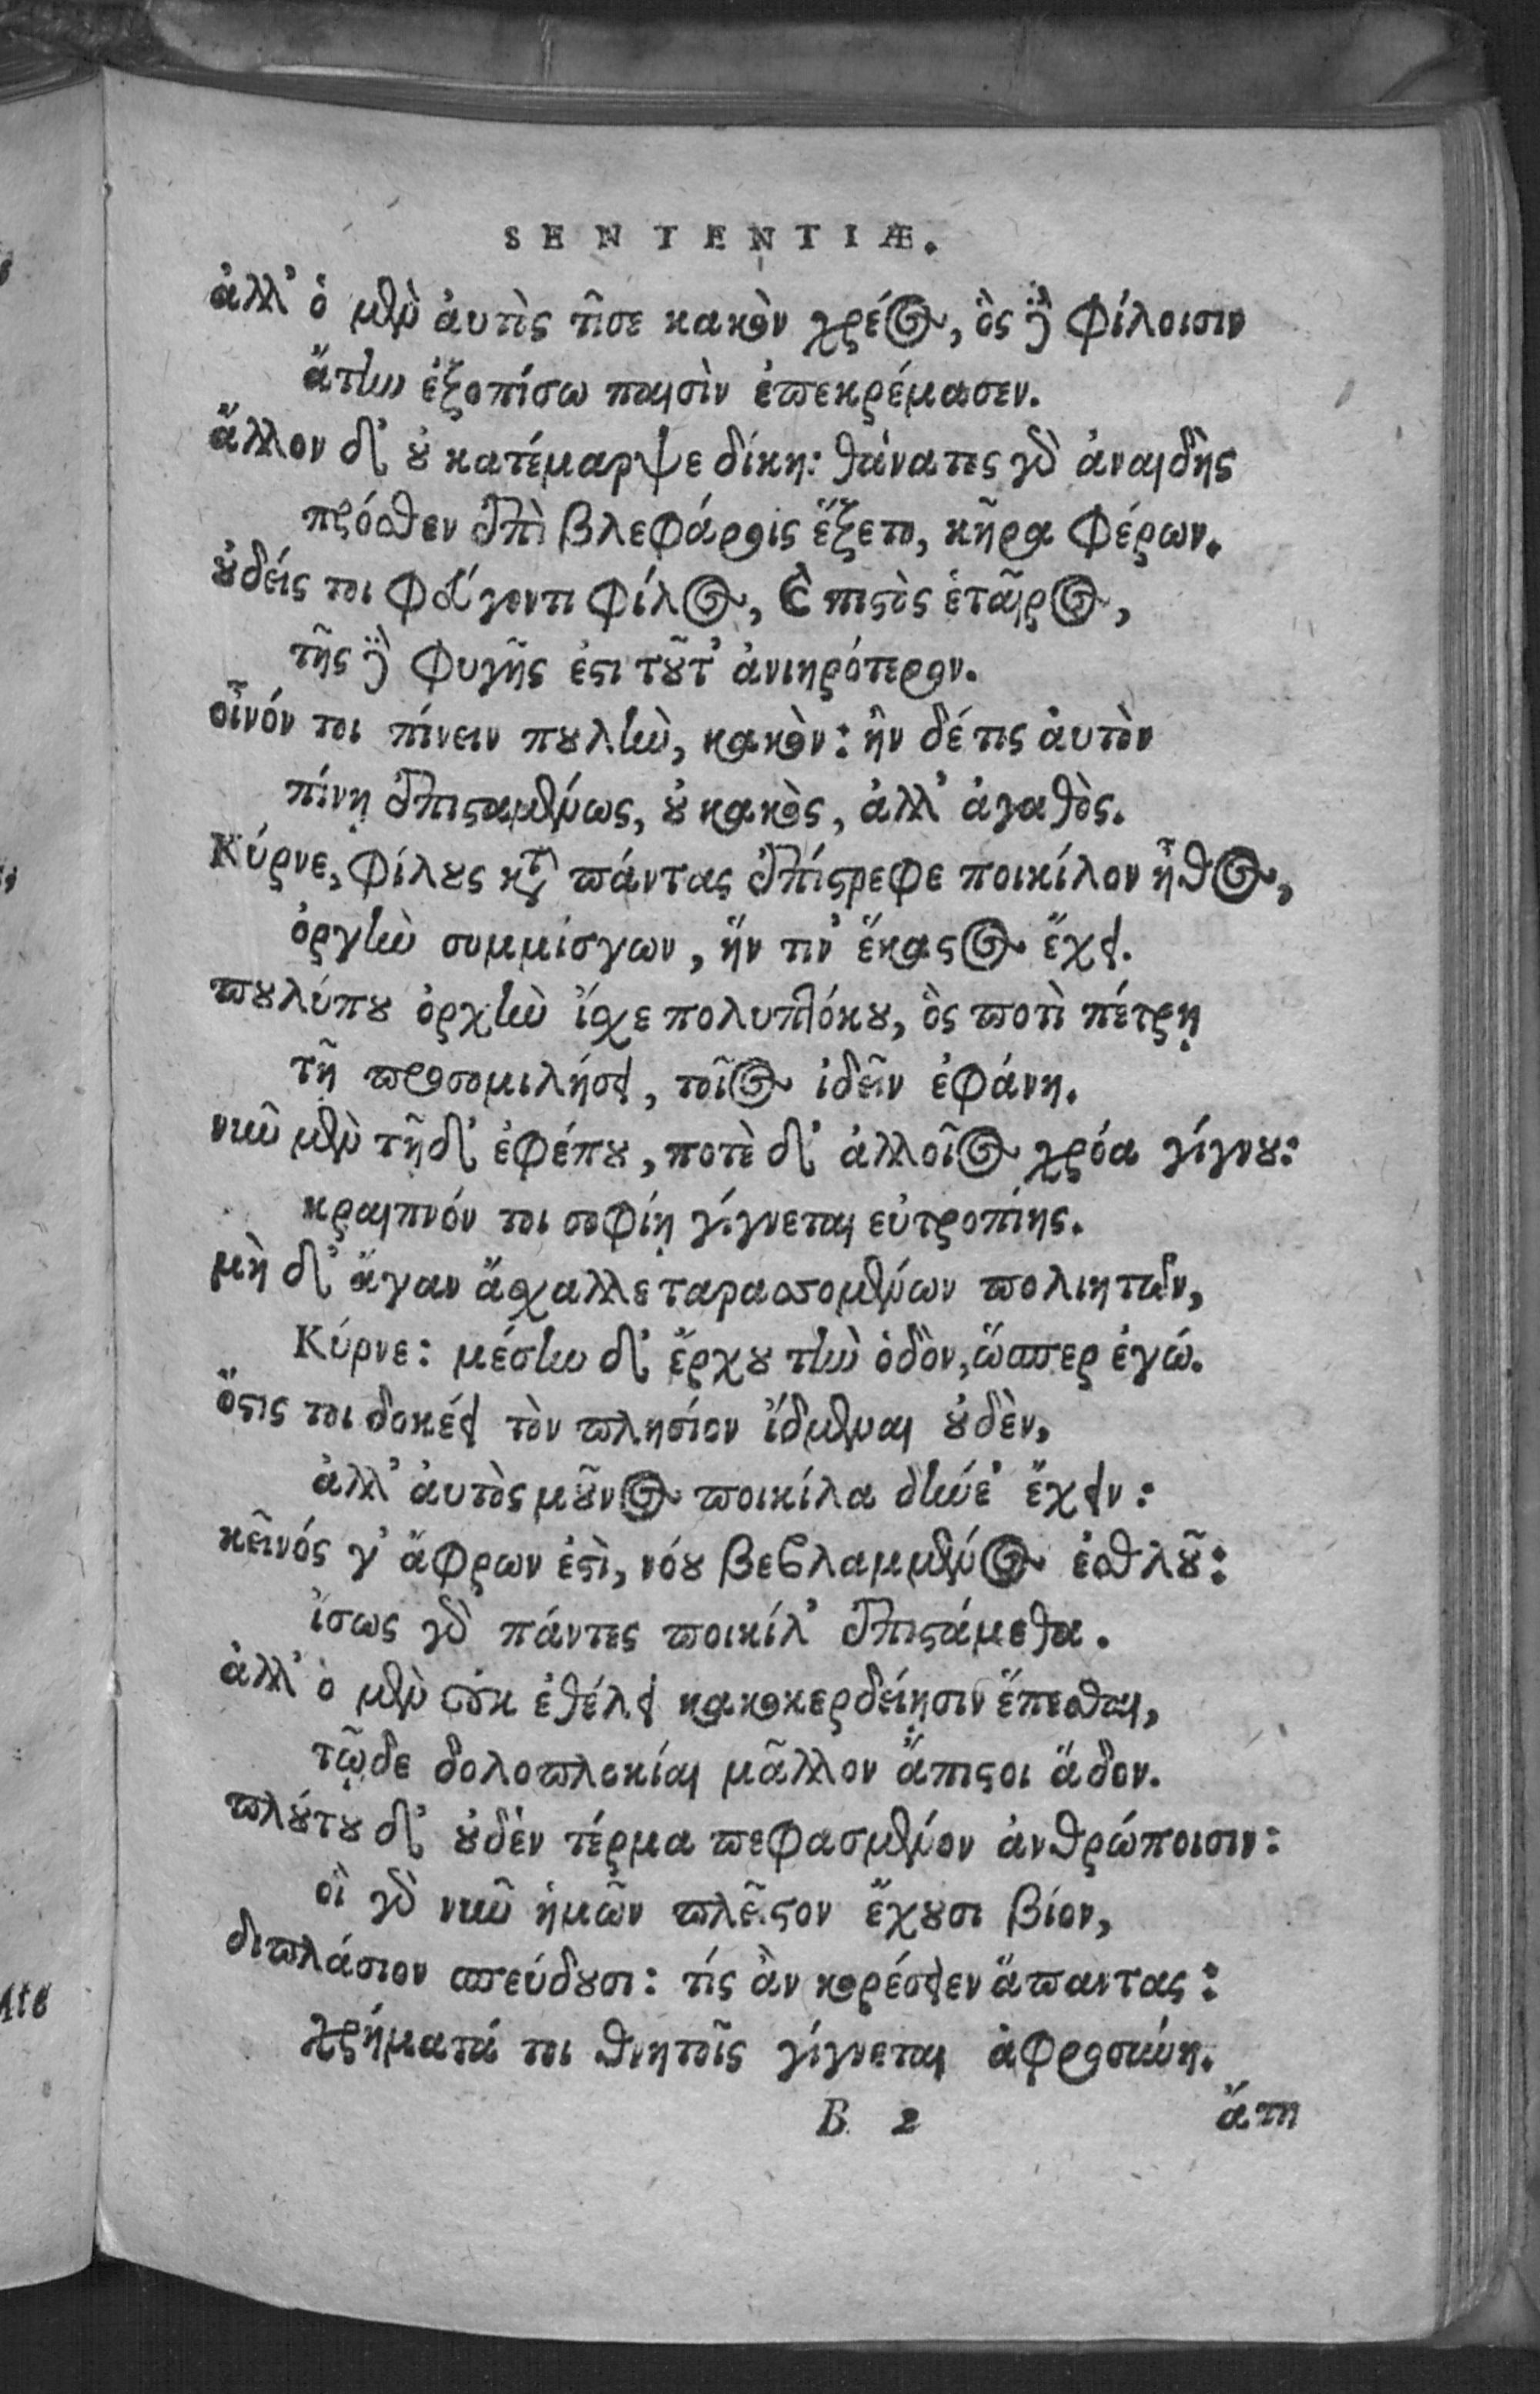 SENTENTIÆ.
ἀλλ' ὁ μὲν ἀυτὸς τῖσε κακὸν χρέος, ὃς δὲ φίλοισιν
ἄτην ἐξοπίσω παισὶν ἐπεκρέμασεν.
ἄλλον δ' οὐ κατέμαρψε δίκη: θάνατος γὰρ ἀναιδὴς
πρόσθεν ἐπὶ βλεφάροις ἕζετο, κῆρα φέρων.
οὐδείς τοι φεύγοντι φίλος, καὶ πιστὸς ἑταῖρος,
τῆς δὲ φυγῆς ἐστι τοῦτ' ἀνιηρότερον.
οἶνόν τοι πίνειν πουλὺν, κακὸν: ἢν δέ τις ἀυτὸν
πίνῃ ἐπισταμένως, οὐ κακὸς, ἀλλ' ἀγαθὸς.
Κύρνε, φίλους κατὰ πάντας ἐπίστρεφε ποικίλον ἦθος,
ὀργὴν συμμίσγων, ἥν τιν' ἕκαστος ἔχει.
πουλύπου ὀρχὴν ἴσχε πολυπλόκου, ὃς ποτὶ πέτρῃ
τῇ προσομιλήσει, τοῖος ἰδεῖν ἐφάνη.
νῦν μὲν τῇδ' ἐφέπου, ποτὲ δ' ἀλλοῖος χρόα γίγνου:
κραιπνόν τοι σοφίῃ γίγνεται εὐτροπίης.
μὴ δ' ἄγαν ἄσχαλλε ταρασσομένων πολιητῶν,
Κύρνε: μέσην δ' ἔρχου τὴν ὁδὸν, ὥσπερ ἐγώ.
ὅστις τοι δοκέει τὸν πλησίον ἴδμεναι οὐδὲν,
ἀλλ' ἀυτὸς μοῦνος ποικίλα δήνε' ἔχειν:
κεῖνός γ' ἄφρων ἐστὶ, νόου βεβλαμμένος ἐσθλοῦ:
ἴσως γὰρ πάντες ποικίλ' ἐπιστάμεθα.
ἀλλ' ὁ μὲν οὐκ ἐθέλει κακοκερδείῃσιν ἕπεσθαι,
τῷδε δολοπλοκίαι μᾶλλον ἄπιστοι ἅδον.
πλούτου δ' οὐδὲν τέρμα πεφασμένον ἀνθρώποισιν:
οἳ γὰρ νῦν ἡμῶν πλεῖστον ἔχουσι βίον,
διπλάσιον σπεύδουσι: τίς ἂν κορέσειεν ἅπαντας:
χρήματά τοι θνητοῖς γίγνεται ἀφροσύνη.
B 2 ἄτη